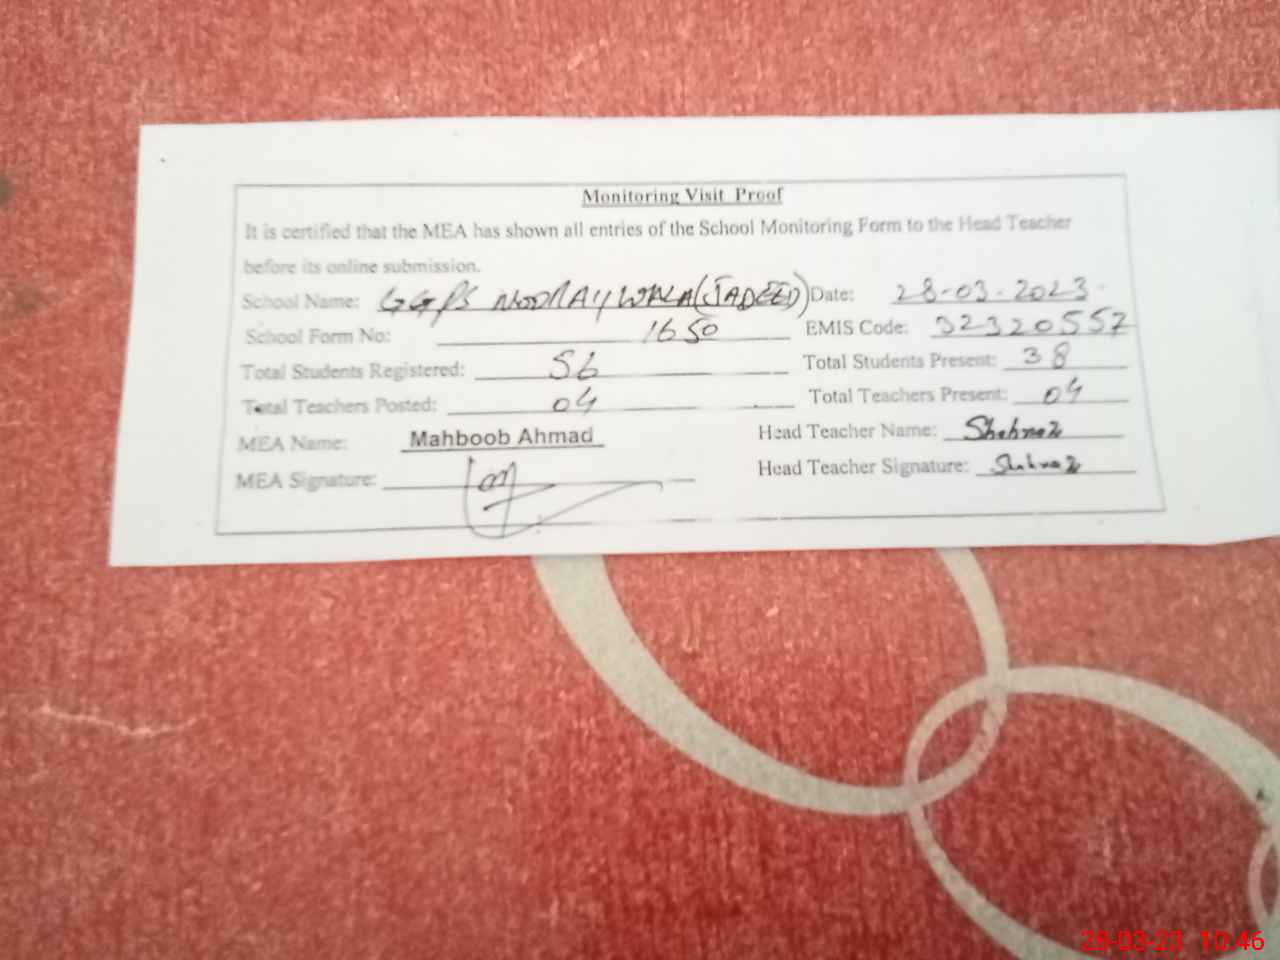 Monitoring Visit Proof
It is certified that the MEA has shown all entries of the School Monitoring Form to the Head Teacher
before its online submission.
School Name: GGPS NOORAY WALA (JADEED) Date: 28-03-2023
School Form No: 1650 EMIS Code: 32320557
Total Students Registered: 56 Total Students Present: 38
Total Teachers Posted: 04 Total Teachers Present: 04
MEA Name: Mahboob Ahmad Head Teacher Name: Shahnaz
MEA Signature: Head Teacher Signature: Shahnaz
28-03-23 10:46